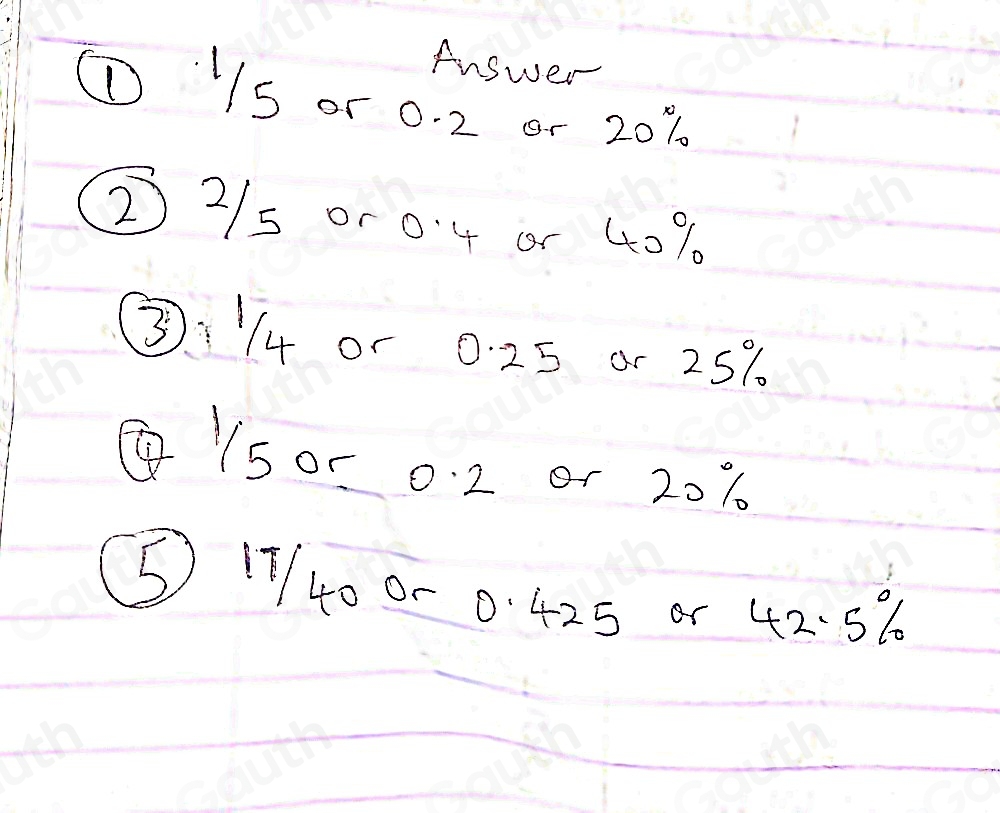 Answer
① 1/5 or 0.2 or 20%
② 2/5 or 0.4 or 40%
③ 1/4 or 0.25 or 25%
④ 1/5 or 0.2 or 20%
⑤ 17/40 or 0.425 or 42.5%
Gauth